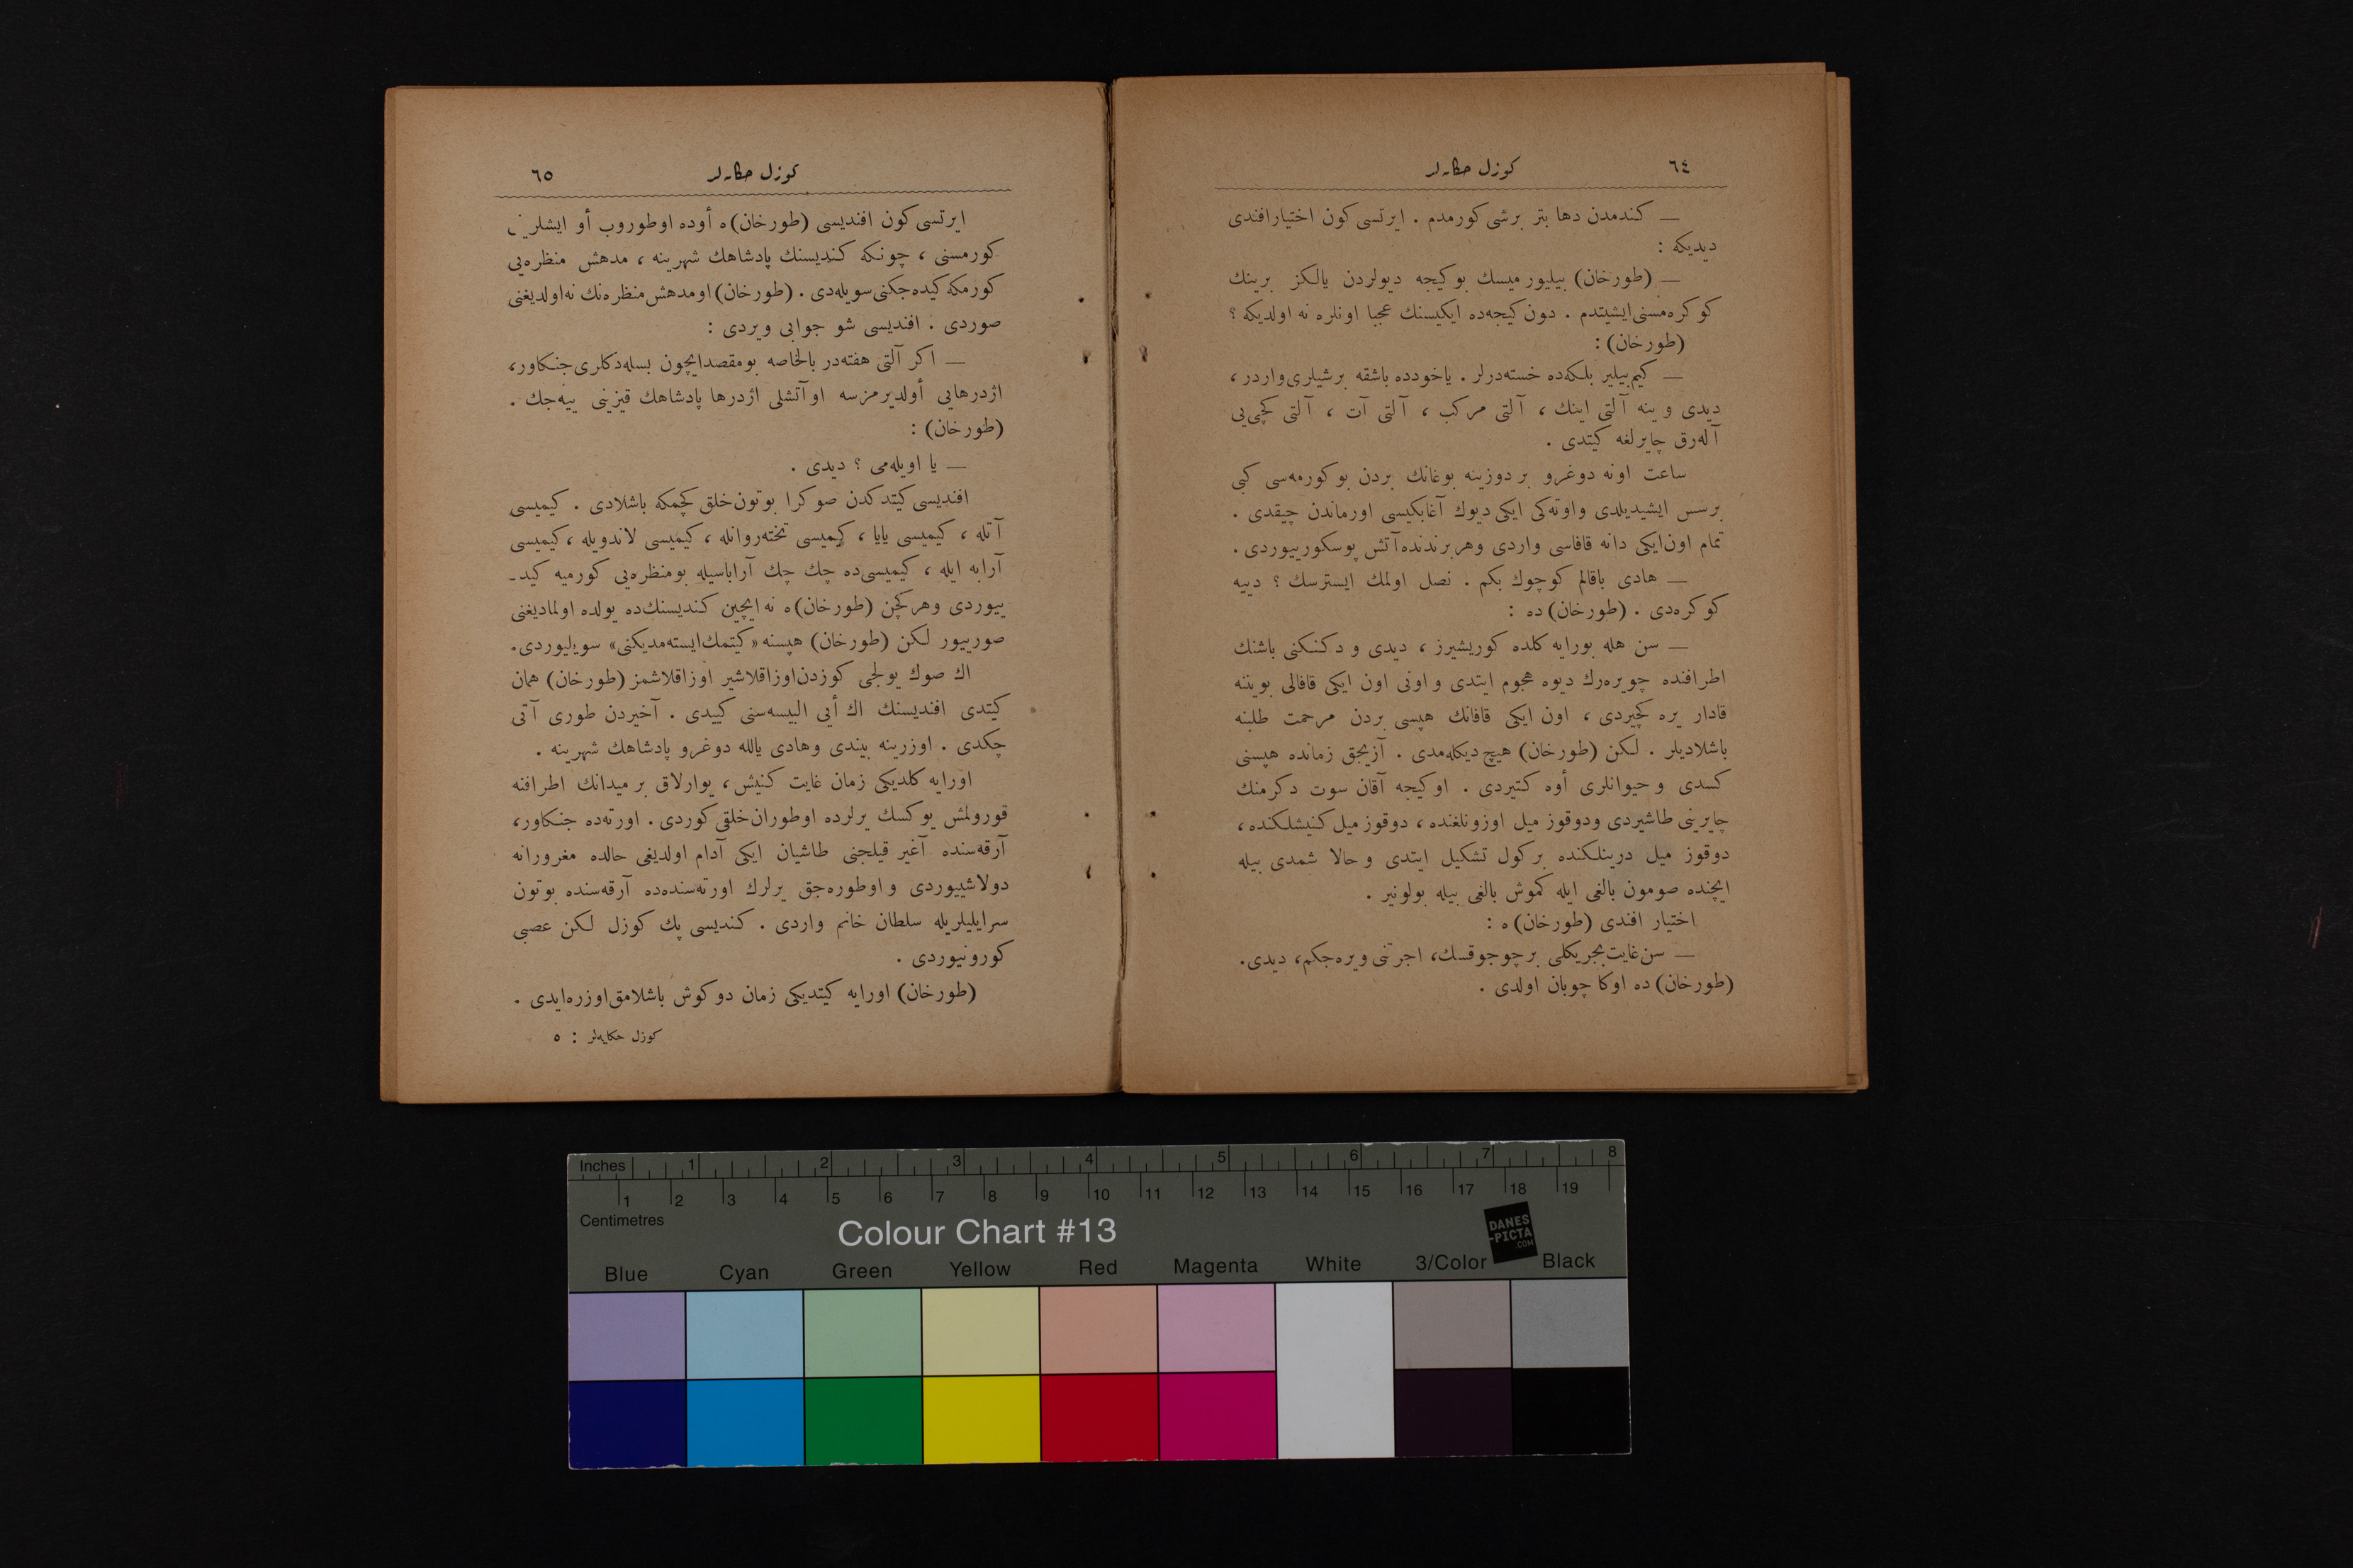 ٦٤
كوزل حكايه‌لر
— كندمدن دها بتر برشی كورمدم . ايرتسی كون اختيار افندی
ديديكه :
— (طورخان) بيليور ميسك بو كيجه ديولردن يالكز برينك
كوكره‌مسنی ايشيتدم . دون كيجه‌ده ايكيسنك عجبا اونلره نه اولديكه ؟
(طورخان) :
— كيم بيلير بلكه‌ده خسته‌درلر . ياخودده باشقه برشيلری واردر ،
ديدی و ينه آلتی اينك ، آلتی مركب ، آلتی آت ، آلتی كچی‌يی
آله‌رق چايرلغه كيتدی .
ساعت اونه دوغرو بر دوزينه بوغانك بردن بوكورمه‌سی كبی
برسس ايشيديلدی واوته‌كی ايكی ديوك آغابكيسی اورماندن چيقدی .
تمام اون‌ايكی دانه قافاسی واردی وهر برندنده آتش پوسكورييوردی .
— هادی باقالم كوچوك بكم . نصل اولمك ايسترسك ؟ دييه
كوكره‌دی . (طورخان) ده :
— سن هله بورايه كلده كوريشيرز ، ديدی و دكنكنی باشنك
اطرافنده چويره‌رك ديوه هجوم ايتدی و اونی اون ايكی قافالی بويننه
قادار يره كچيردی ، اون ايكی قافانك هپسی بردن مرحمت طلبنه
باشلاديلر . لكن (طورخان) هيچ ديكله‌مدی . آزيجق زمانده هپسنی
كسدی و حيوانلری أوه كتيردی . اوكيجه آقان سوت دكرمنك
چايرينی طاشيردی ودوقوز ميل اوزونلغنده ، دوقوز ميل كنيشلكنده ،
دوقوز ميل درينلكنده بركول تشكيل ايتدی و حالا شمدی بيله
ايچنده صومون بالغی ايله كموش بالغی بيله بولونير .
اختيار افندی (طورخان) ه :
— سن غايت بجريكلی بر چوجوقسك ، اجرتنی ويره‌جكم ، ديدی .
(طورخان) ده اوكا چوبان اولدی .
كوزل حكايه‌لر
٦٥
ايرتسی كون افنديسی (طورخان) ه أوده اوطوروب أو ايشلرينی
كورمسنی ، چونكه كنديسنك پادشاهك شهرينه ، مدهش منظره‌يی
كورمكه كيده‌جكنی سويله‌دی . (طورخان) او مدهش منظره‌نك نه اولديغنی
صوردی . افنديسی شو جوابی ويردی :
— اكر آلتی هفته‌در بالخاصه بو مقصد ايچون بسله‌دكلری جنكاور ،
اژدرهايی أولديرمزسه او آتشلی اژدرها پادشاهك قيزينی ييه‌جك .
(طورخان) :
— يا اويله‌می ؟ ديدی .
افنديسی كيتدكدن صوكرا بوتون خلق كچمكه باشلادی . كيميسی
آتله ، كيميسی يايا ، كيميسی تخته‌روانله ، كيميسی لاندويله ، كيميسی
آرابه ايله ، كيميسی‌ده چك چك آراباسيله بو منظره‌يی كورميه كيد-
ييوردی وهر كچن (طورخان) ه نه ايچين كنديسنك‌ده يولده اولماديغنی
صورييور لكن (طورخان) هپسنه «كيتمك ايسته‌مديكنی» سويليوردی .
اك صوك يولجی كوزدن اوزاقلاشير اوزاقلاشمز (طورخان) همان
كيتدی افنديسنك اك أيی البيسه‌سنی كييدی . آخيردن طوری آتی
چكدی . اوزرينه بيندی وهادی يالله دوغرو پادشاهك شهرينه .
اورايه كلديكی زمان غايت كنيش ، يوارلاق بر ميدانك اطرافنه
قورولمش يوكسك يرلرده اوطوران خلقی كوردی . اورته‌ده جنكاور ،
آرقه‌سنده آغير قيلجنی طاشيان ايكی آدام اولديغی حالده مغرورانه
دولاشييوردی و اوطوره‌جق يرلرك اورته‌سنده‌ده آرقه‌سنده بوتون
سرايليلريله سلطان خانم واردی . كنديسی پك كوزل لكن عصبی
كورونيوردی .
(طورخان) اورايه كيتديكی زمان دوكوش باشلامق اوزره‌ايدی .
كوزل حكايه‌لر : ٥
Inches 1 2 3 4 5 6 7 8
1 2 3 4 5 6 7 8 9 10 11 12 13 14 15 16 17 18 19
Centimetres
Colour Chart #13
DANES
-PICTA
.COM
Blue Cyan Green Yellow Red Magenta White 3/Color Black